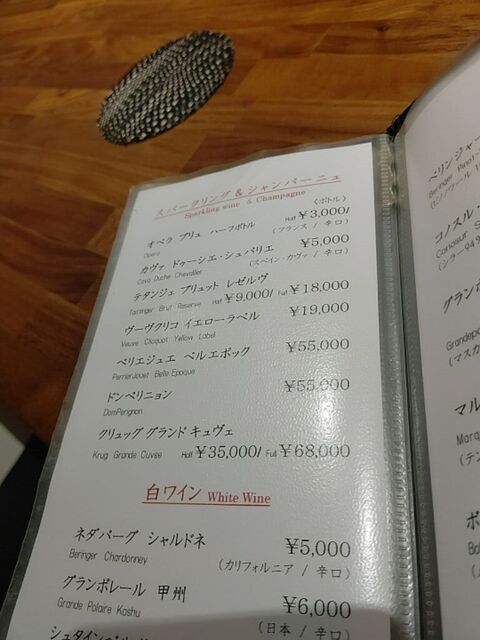 スパークリング & シャンパーニュ
Sparkling wine & Champagne
(ボトル)
オペラ ブリュ ハーフボトル Half ¥3,000/
Opera (フランス / 辛口)
カヴァ ドゥーシエ・シュバリエ ¥5,000
Cava Duche Chevalier (スペイン・カヴァ / 辛口)
テタンジェ ブリュット レゼルヴ
Taittinger Brut Reserve Half ¥9,000/ Full ¥18,000
ヴーヴクリコ イエローラベル ¥19,000
Veuve Clicquot Yellow Label
ペリエジュエ ベルエポック ¥55,000
PerrierJouet Belle Epoque
ドンペリニョン ¥55,000
DomPerignon
クリュッグ グランド キュヴェ
Krug Grande Cuvee Half ¥35,000/ Full ¥68,000
白ワイン White Wine
ネダバーグ シャルドネ ¥5,000
Beringer Chardonney (カリフォルニア / 辛口)
グランポレール 甲州 ¥6,000
Grande Polaire Koshu (日本 / 辛口
ベリンジャー
Beringer Pinot
コノスル・
Conosur S
グランポ
Grandepo
(マスカ
マル
Marq
(テン
ボ